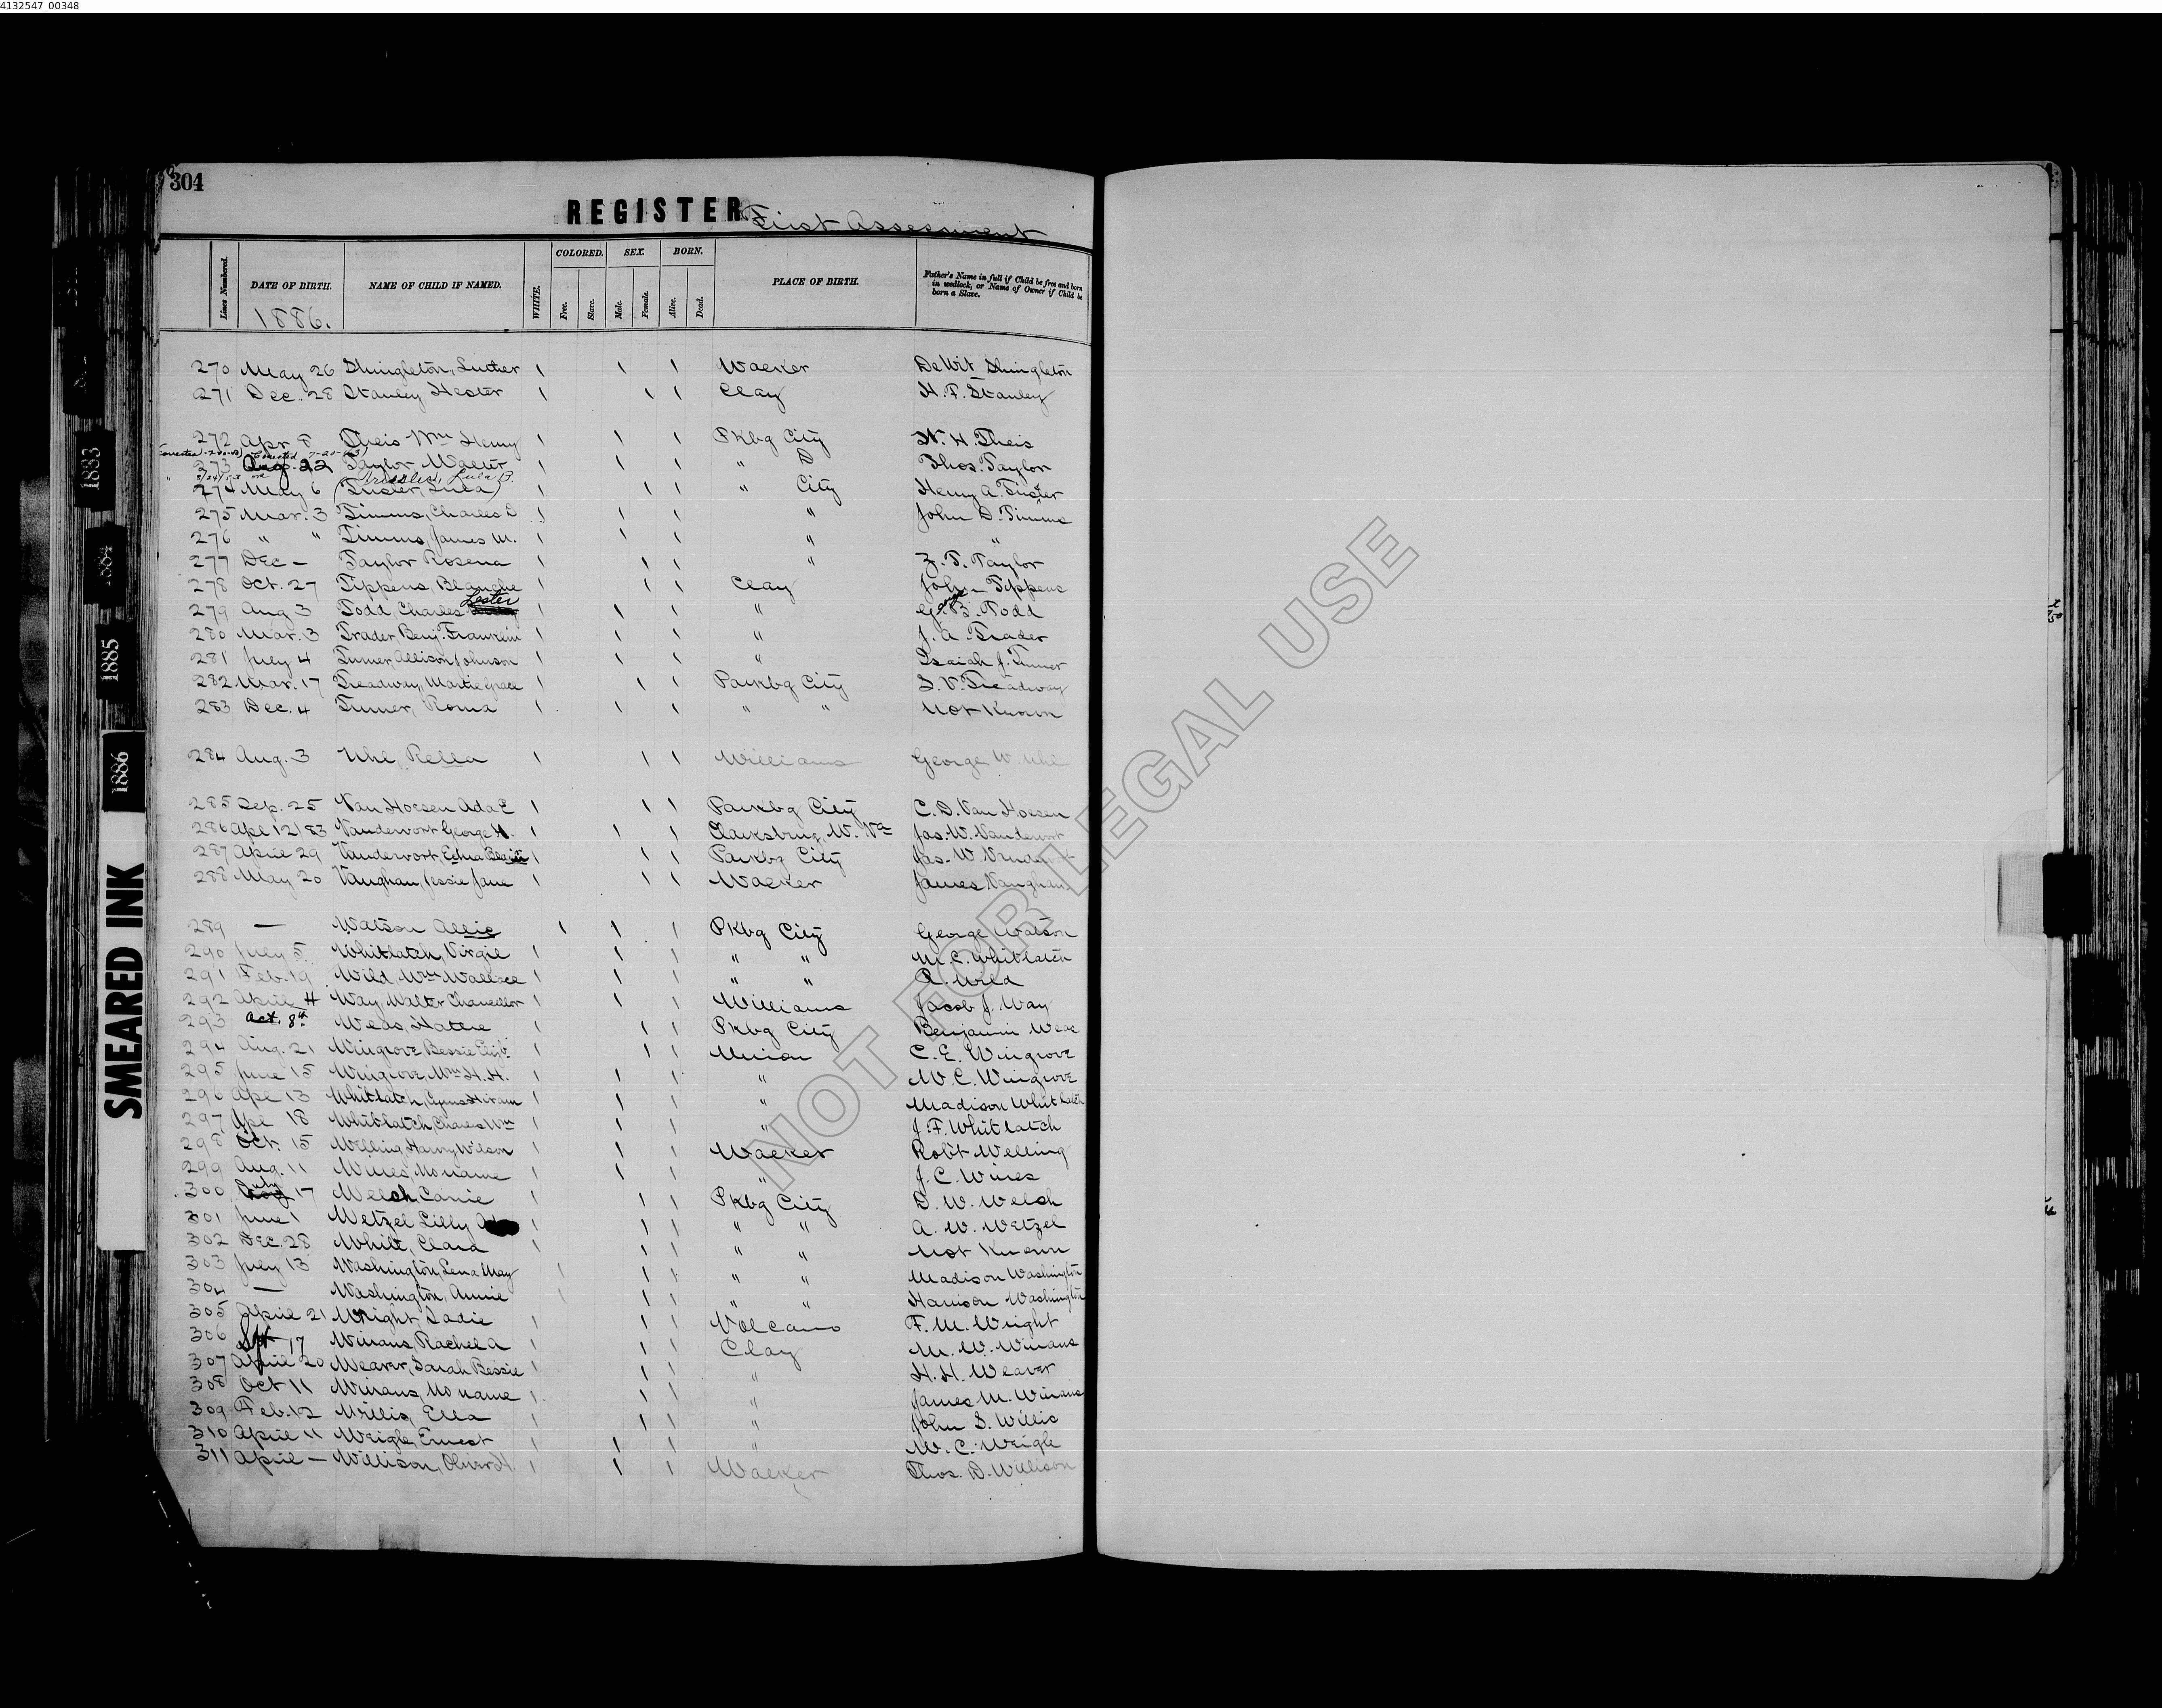 4132547_00348
304
REGISTER First Assessment
Lines Numbered. DATE OF BIRTH. NAME OF CHILD IF NAMED. WHITE. COLORED. Free. Slave. SEX. Male. Female. BORN. Alive. Dead. PLACE OF BIRTH. Father's Name in full if Child be free and born in wedlock, or Name of Owner if Child be born a Slave.
1886.
270 May 26 Shingleton, Luther 1 1 1 Walker DeWit Shingleton
271 Dec. 28 Stanley Hester 1 1 1 Clay H. F. Stanley
272 Apr 8 Theis Wm Henry 1 1 1 Pkbg City W. H. Theis
Corrected
273 Aug. 22 Taylor Walter 1 1 1 " D Thos. Taylor
Lula B.
274 May 6 (Tuster, Lula) 1 1 1 " City Henry A. Tuster
275 Mar. 3 Timms, Charles D 1 1 1 " John D. Timms
276 " " Timms, James M. 1 1 1 " "
277 Dec - Taylor Rosena 1 1 1 " Z. T. Taylor
278 Oct. 27 Tippens, Blanche 1 1 1 Clay John Tippens
279 Aug 3 Todd Charles Lester 1 1 1 " George B. Todd
280 Mar. 3 Trader, Benj. Franklin 1 1 1 " J. A. Trader
281 July 4 Turner Allison Johnson 1 1 1 " Isaiah J. Turner
282 Mar. 17 Treadway, Martie Grace 1 1 1 Parkbg City S. V. Treadway
283 Dec. 4 Turner, Roma 1 1 1 " " Not Known
284 Aug. 3 Uhl, Rella 1 1 1 Williams George W. Uhl
285 Sep. 25 Van Hoesen Ada E 1 1 1 Parkbg City C. D. Van Hoesen
286 Apl 12/83 Vandervort George W. 1 1 1 Clarksburg, W. Va Jas. W. Vandervort
287 April 29 Vandervort, Edna 1 1 1 Parkbg City Jas. W. Vandervort
288 May 20 Vaughan, Jessie Jane 1 1 1 Walker James Vaughan
289 — Watson Allie 1 1 1 Pkbg City George Watson
290 July 5 Whitlatch, Virgil 1 1 1 " " M. C. Whitlatch
291 Feb. 19 Wild, Wm Wallace 1 1 1 " " A. Wild
292 April 4 Way, Walter Chancellor 1 1 1 Williams Jacob J. Way
293 Oct. 8th Weas, Hattie 1 1 1 Pkbg City Benjamin Weas
294 Aug. 21 Wingrove Bessie Elizb. 1 1 1 Union C. E. Wingrove
295 June 15 Wingrove, Wm H. H. 1 1 1 " W. C. Wingrove
296 Apl 13 Whitlatch, Cyrus Hiram 1 1 1 " Madison Whitlatch
297 Apl 18 Whitlatch, Charles Wm 1 1 1 " J. F. Whitlatch
298 Oct. 15 Welling, Harry Wilson 1 1 1 Walker Robt Welling
299 Aug. 11 Wines, No name 1 1 1 " J. C. Wines
300 July 17 Welch, Carrie 1 1 1 Pkbg City D. W. Welch
301 June 1 Wetzel Lilly 1 1 1 " " A. W. Wetzel
302 Dec. 28 White, Clara 1 1 1 " " Not Known
303 July 13 Washington, Lena May 1 1 1 " " Madison Washington
304 — Washington, Annie 1 1 1 " " Harrison Washington
305 April 21 Wright Sadie 1 1 1 Volcano F. M. Wright
306 Sept 17 Winans, Rachel A 1 1 1 Clay M. W. Winans
307 April 20 Weaver, Sarah Bessie 1 1 1 " H. H. Weaver
308 Oct 11 Winans, No name 1 1 1 " James M. Winans
309 Feb. 12 Willis, Ella 1 1 1 " John S. Willis
310 April 11 Weigle, Ernest 1 1 1 " W. C. Weigle
311 April — Willison, Oliver H. 1 1 1 Walker Thos. D. Willison
1883
1884
1885
1886
SMEARED INK
NOT FOR LEGAL USE